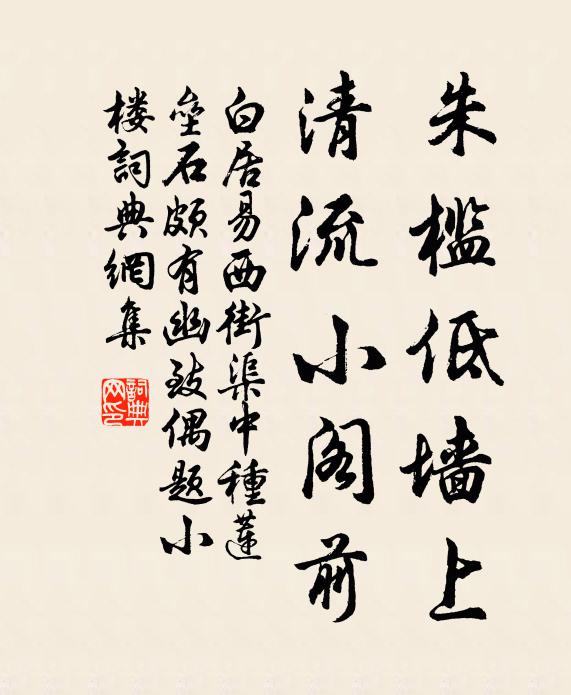 朱槛低墙上
清流小阁前
白居易西街渠中種蓮
壘石颇有幽致偶题小
楼詞典網集
詞典
网印